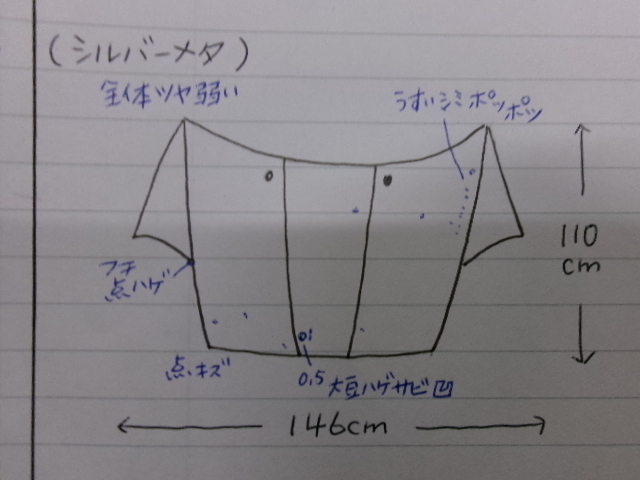 (シルバーメタ)
全体ツヤ弱い
うすいシミポツポツ
110
cm
フチ
点ハゲ
点キズ
0.5 大豆ハゲサビ凹
146cm